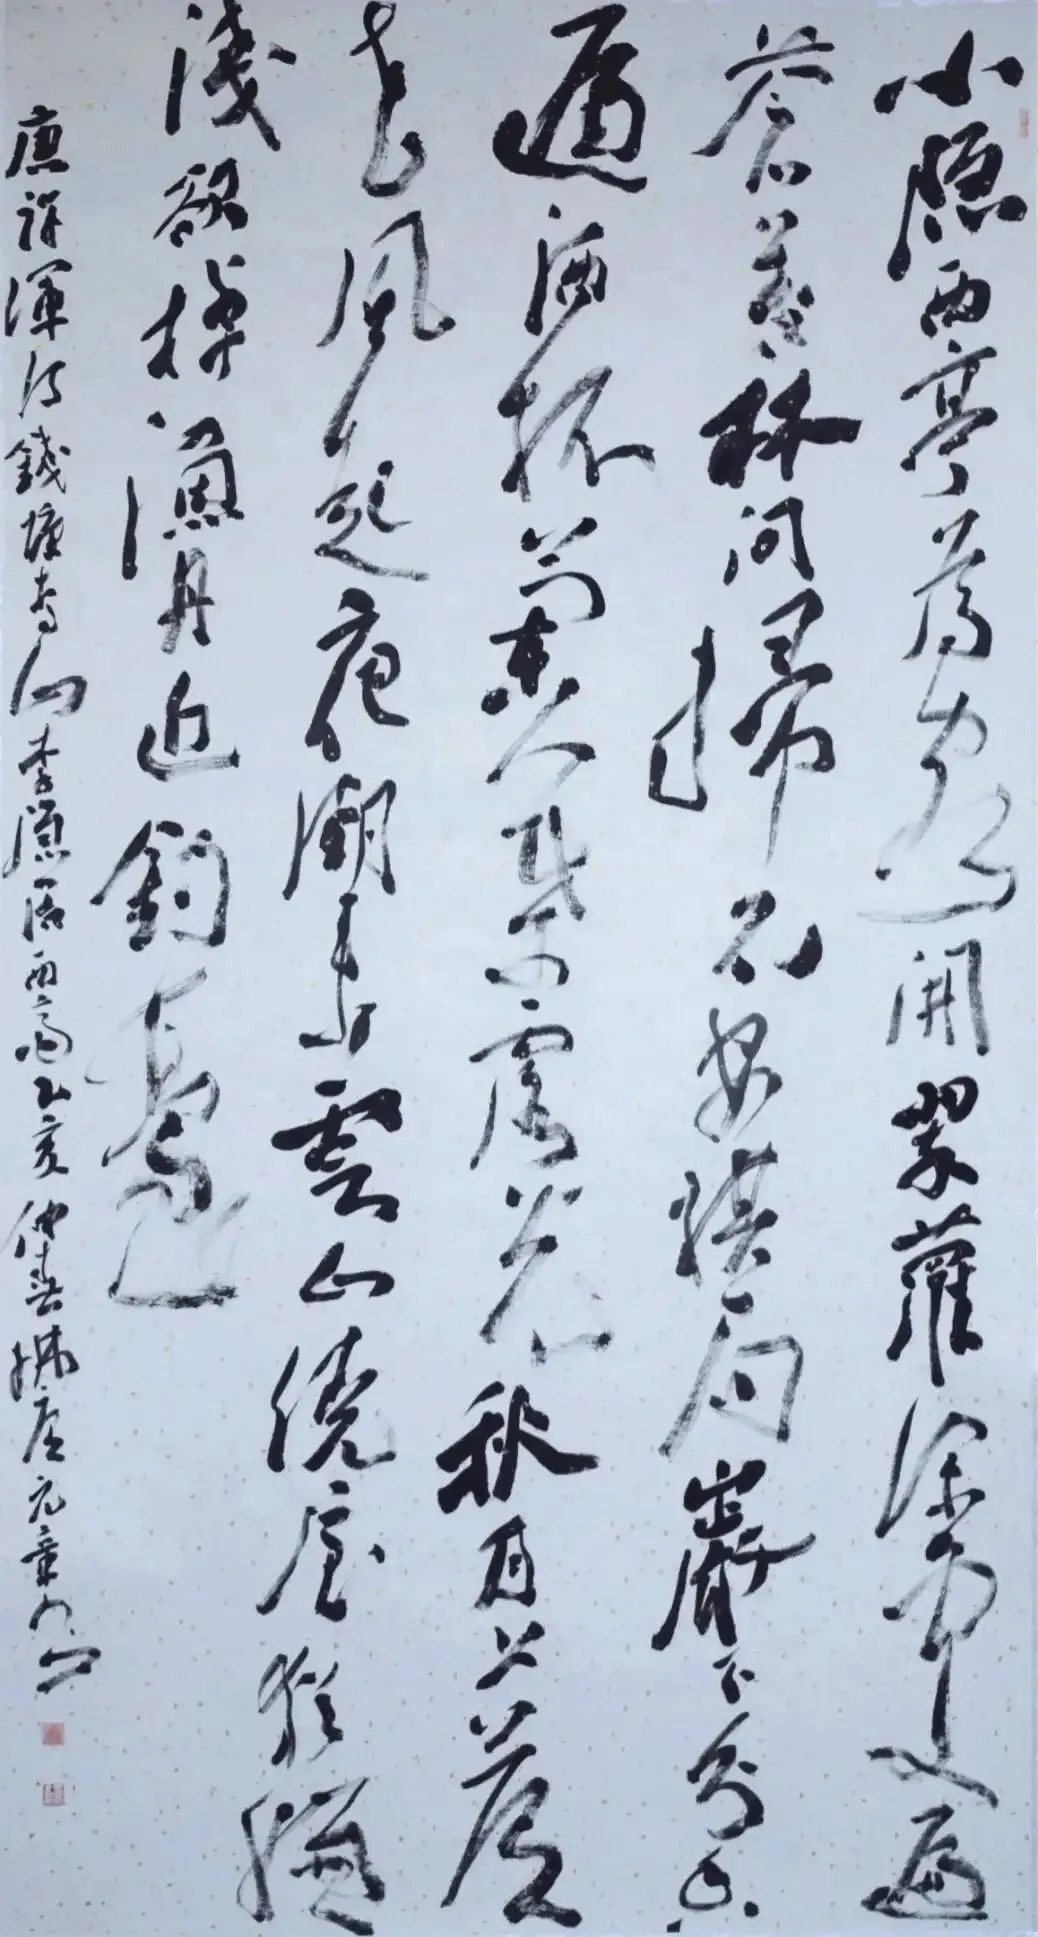 小隱西亭為客開翠蘿深處遍
蒼苔林間掃石安棋局巖下分泉
遞酒杯蘭葉露光秋月上蘆
花風起夜潮來雲山繞屋猶嫌
淺欲棹漁舟近釣臺
唐許渾詩錢塘青山李隱居西齋乙亥仲春元章